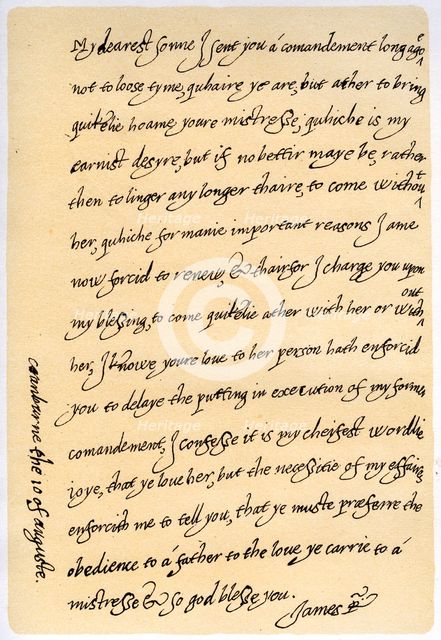 My dearest sonne I sent you á comandement long agoe
not to loose tyme, quhaire ye are, but ather to bring
quikelie hoame youre mistresse, quhiche is my
earnist desyre, but if no bettir maye be, rather
then to linger any longer thaire, to come without
her, quhiche for manie important reasons I ame
now forcid to renew, & thairfor I charge you upon
my blessing, to come quikelie ather with her or without
her, I knowe youre love to her person hath enforcid
you to delaye the putting in execution of my former
comandement, I confesse it is my cheifest wordlie
ioye, that ye love her, but the necessitie of my effaires
enforcith me to tell you, that ye muste præferre the
obedience to á father to the love ye carrie to á
mistresse & so god blesse you.
James R
cranburne the 10 of auguste.
Heritage
Heritage
Heritage
Images
Images
Heritage
Heritage